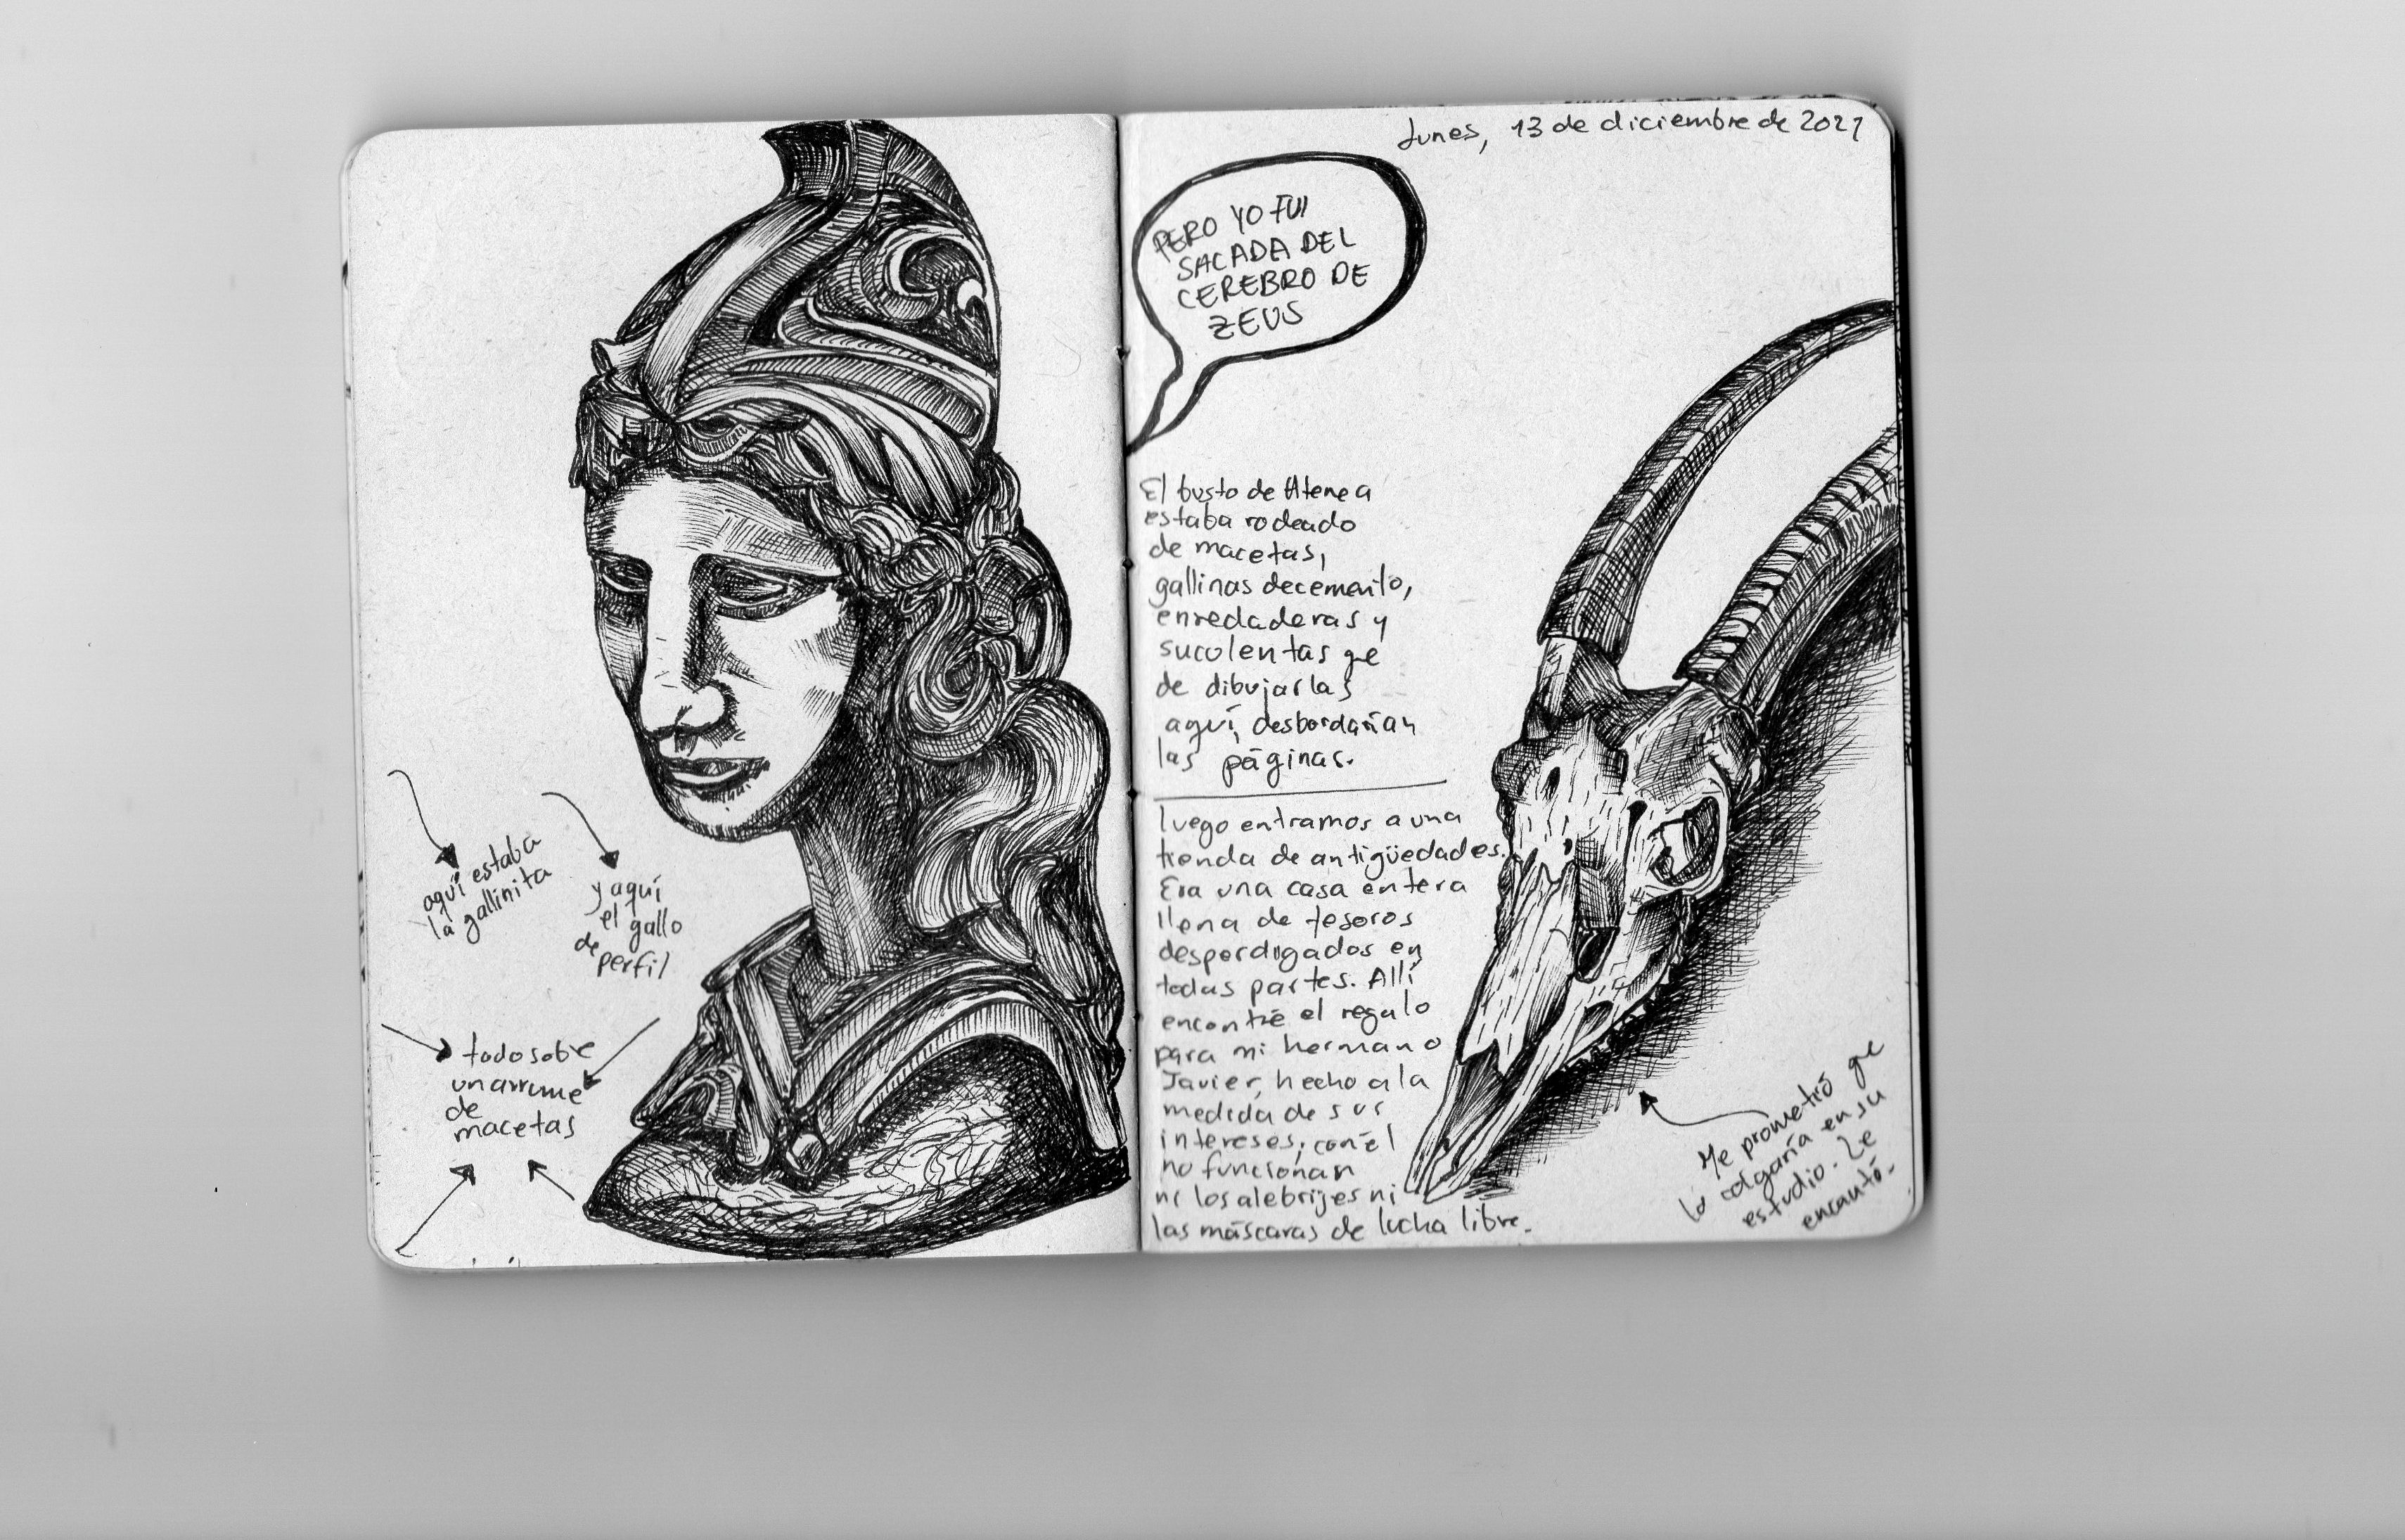 aquí estaba
la gallinita
y aquí
el gallo
de
perfil
todo sobre
un arrume
de
macetas
Lunes, 13 de diciembre de 2021
PERO YO FUI
SACADA DEL
CEREBRO DE
ZEUS
El busto de Atenea
estaba rodeado
de macetas,
gallinas de cemento,
enredaderas y
suculentas qe
de dibujarlas
aquí, desbordarían
las páginas.
Luego entramos a una
tienda de antigüedades.
Era una casa entera
llena de tesoros
desperdigados en
todas partes. Allí
encontré el regalo
para mi hermano
Javier, hecho a la
medida de sus
intereses; con él
no funcionan
ni los alebrijes ni
las máscaras de lucha libre.
Me prometió qe
lo colgaría en su
estudio. Le
encantó.